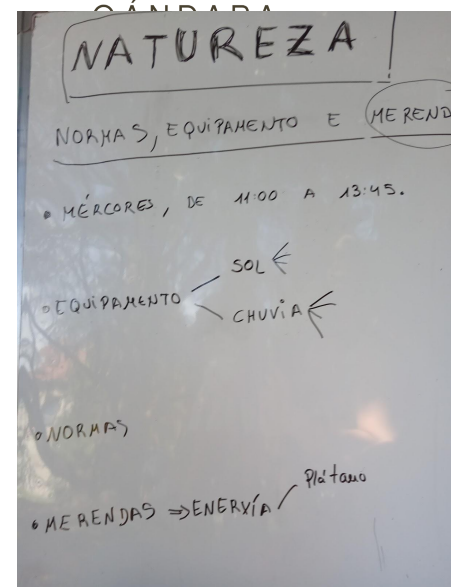 GÁNDARA
NATUREZA
NORMAS, EQUIPAMENTO E MEREND
• MÉRCORES, DE 11:00 A 13:45.
• EQUIPAMENTO
SOL
CHUVIA
• NORMAS
• MERENDAS ⇒ ENERXÍA
Plátano